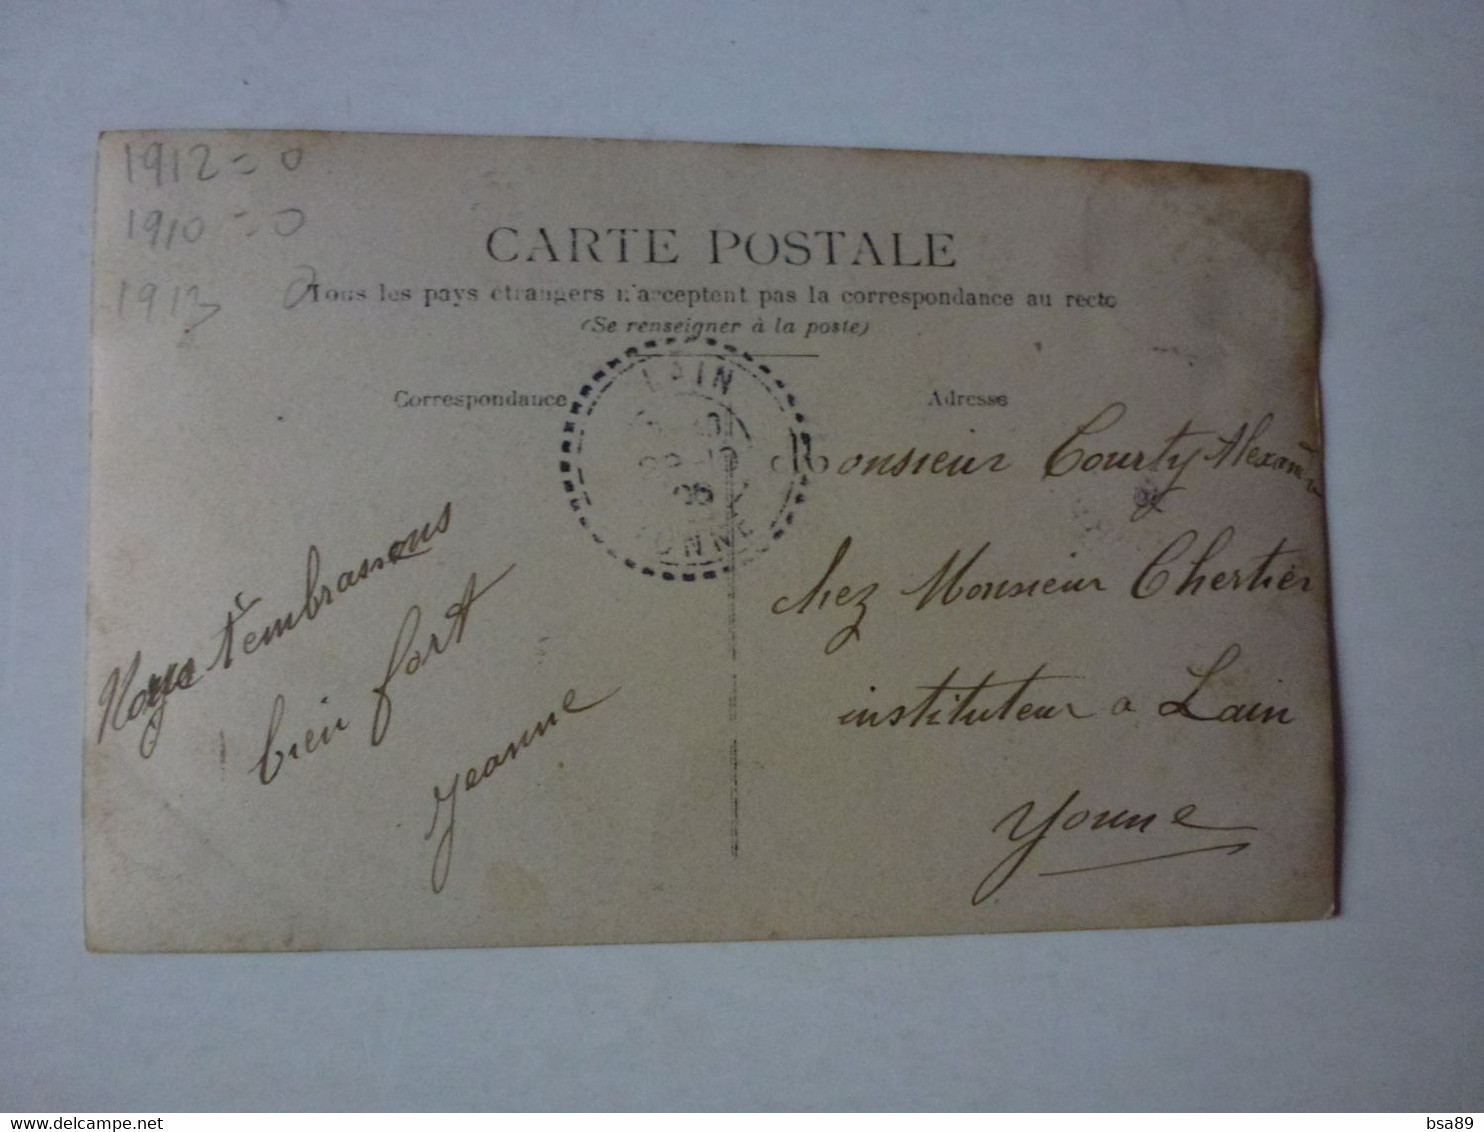 1912 = 0
1910 = 0
1913 0
CARTE POSTALE
Tous les pays étrangers n'acceptent pas la correspondance au recto
(Se renseigner à la poste)
Correspondance
Adresse
LAIN
YONNE
Nous t'embrassons
bien fort
Jeanne
Monsieur Courty Alexandre
chez Monsieur Chertier
instituteur a Lain
Yonne
delcampe.net
bsa89